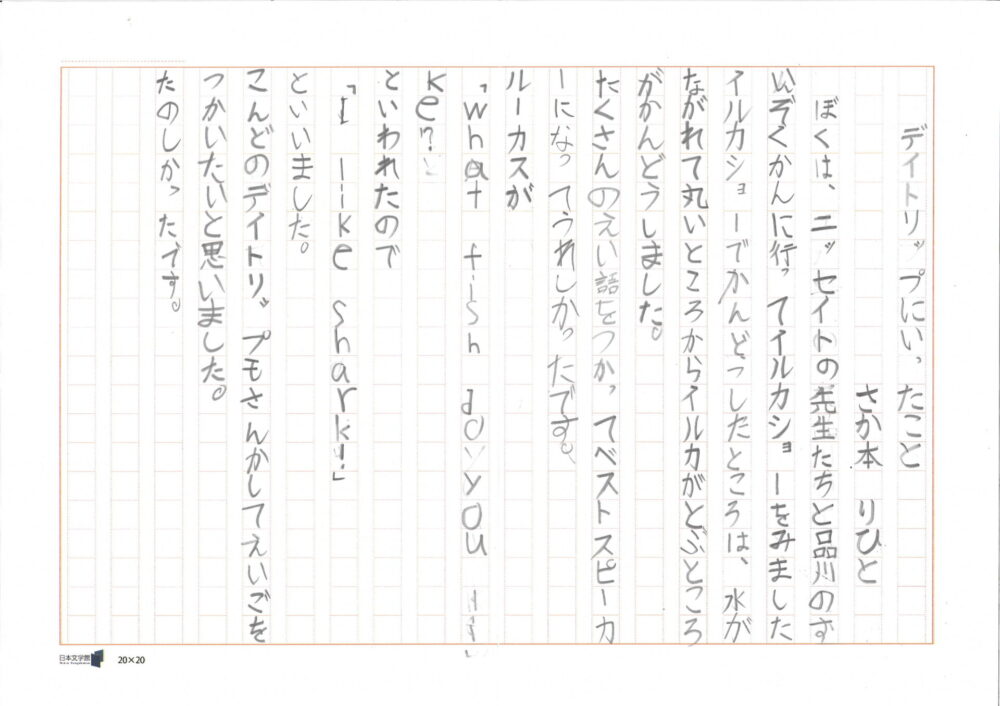 デイトリップにいったこと
さか本 りひと
ぼくは、ニッセイトの先生たちと品川のす
いぞくかんに行ってイルカショーをみました
イルカショーでかんどうしたところは、水が
ながれて丸いところからイルカがとぶところ
がかんどうしました。
たくさんのえい語をつかってベストスピーカ
ーになってうれしかったです。
ルーカスが
「what fish do you li
ke?」
といわれたので
「I like shark!」
といいました。
こんどのデイトリップモさんかしてえいごを
つかいたいと思いました。
たのしかったです。
日本文学館
20×20